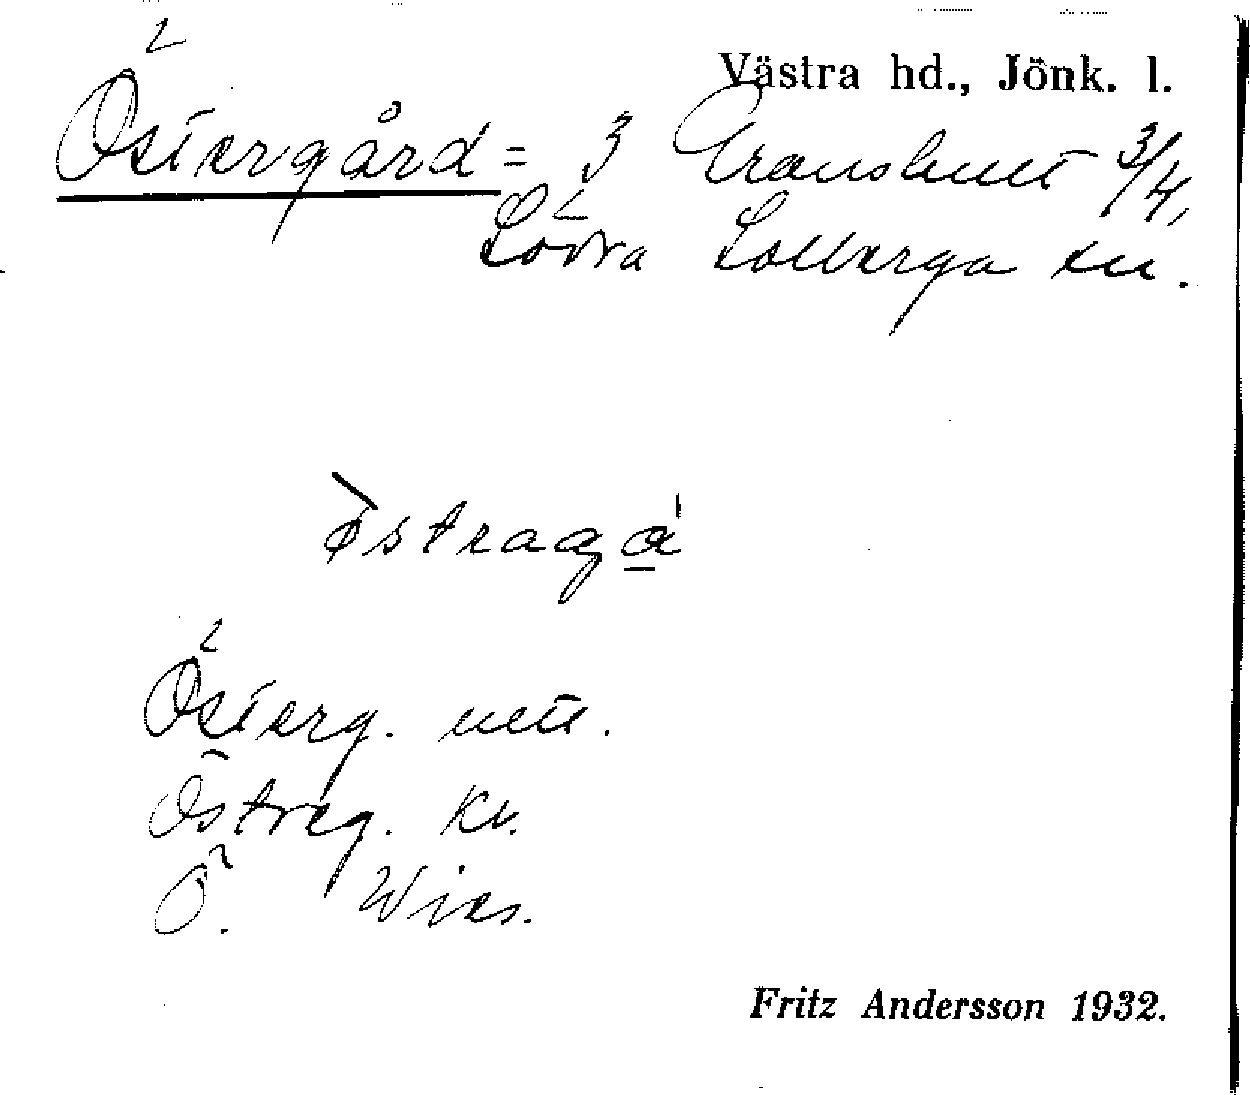 Västra hd., Jönk. l.
Östergård = 3 Granshult 3/4,
Södra Solberga sn.
östragá
Österg. utt.
Östreg. Kv.
Ö. Wies.
Fritz Andersson 1932.